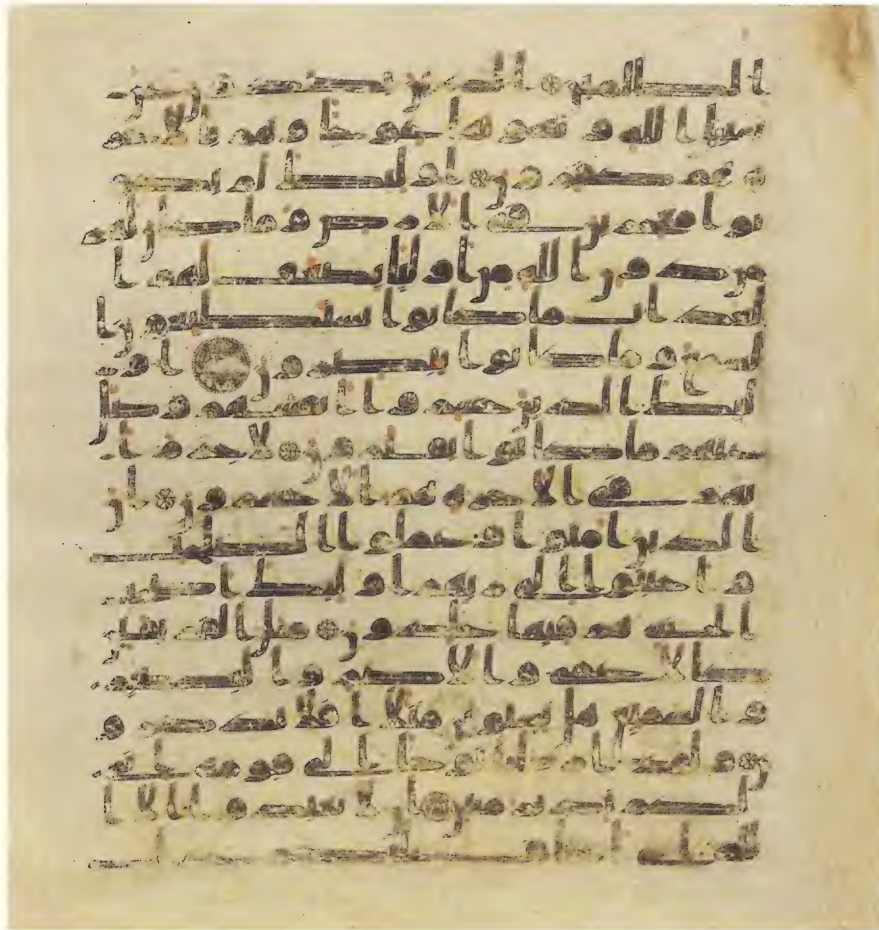 الظلمين الذين يصدون عن
سبيل الله ويبغونها عوجا وهم بالاخر
ة هم كفرون اولئك لم يكو
نوا معجزين في الارض وما كان لهم
من دون الله من اوليا يضعف لهم ا
لعذاب ما كانوا يستطيعون ا
لسمع وما كانوا يبصرون او
لئك الذين خسروا انفسهم وضل
عنهم ما كانوا يفترون لا جرم ا
نهم في الاخرة هم الاخسرون ان
الذين امنوا وعملوا الصلحت
واخبتوا الى ربهم اولئك اصحب
الجنة هم فيها خلدون مثل الفريقين
كالاعمى والاصم والبصير
والسميع هل يستوين مثلا افلا تذكرو
ن ولقد ارسلنا نوحا الى قومه اني
لكم نذير مبين ان لا تعبدوا الا ا
لله اني اخاف عليكم عذاب